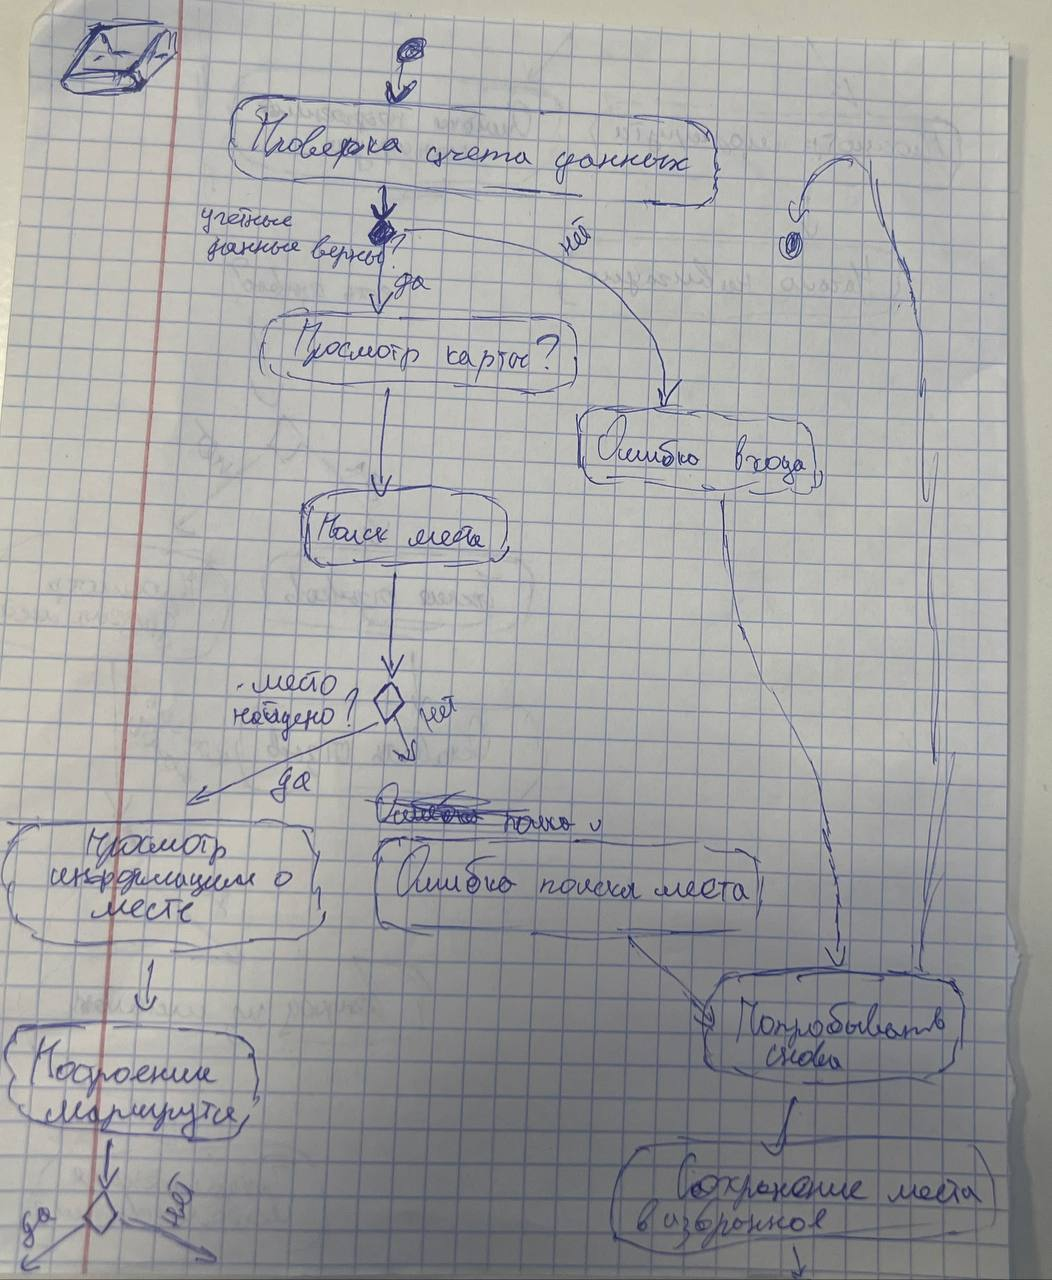 Проверка счета данных
учетные
данные верны?
нет
да
Просмотр карты?
Ошибка входа
Поиск места
место
найдено?
нет
да
поиска
Просмотр
информации о
месте
Ошибка поиска места
Попробывать
снова
Построение
маршрута
да
нет
Сохранение места
в избранное